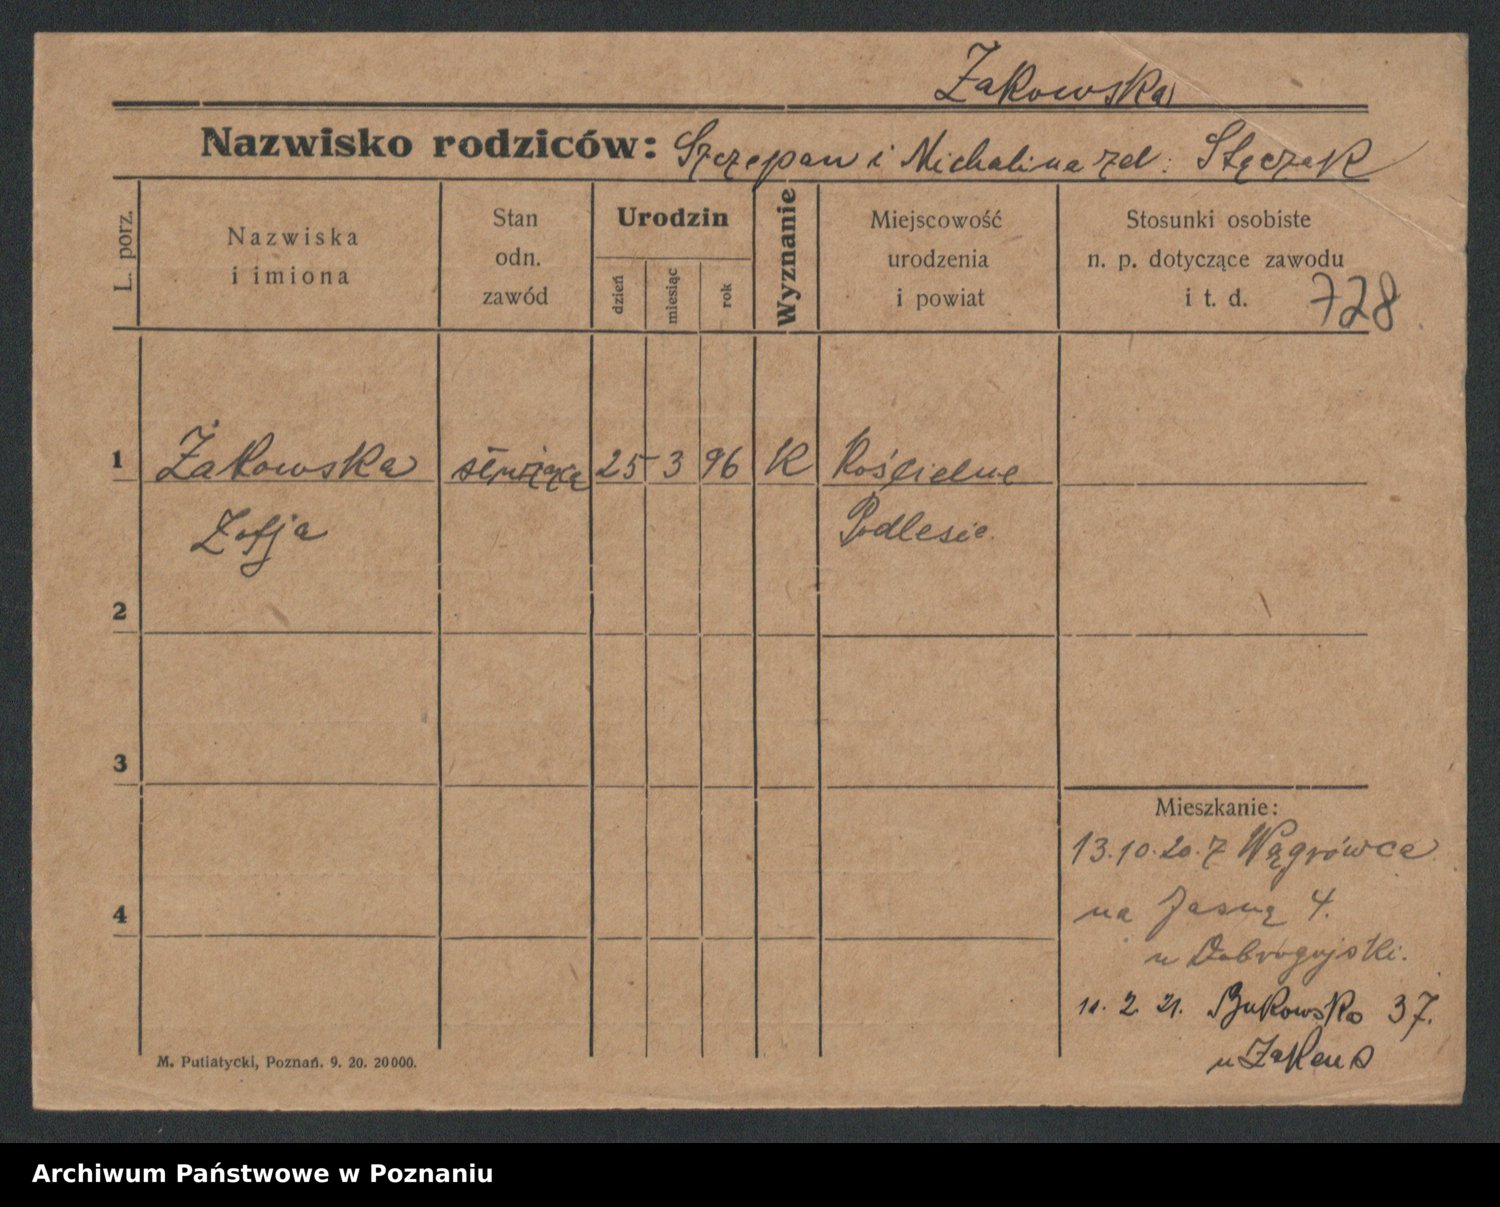 Żakowska
Nazwisko rodziców: Szczepan i Michalina zd: Stęczak
L. porz.
Nazwiska
i imiona
Stan
odn.
zawód
Urodzin
dzień
miesiąc
rok
Wyznanie
Miejscowość
urodzenia
i powiat
Stosunki osobiste
n. p. dotyczące zawodu
i t. d.
728
1 Żakowska 25 3 96 K Kościelne
Zofja Podlesie.
2
3
Mieszkanie:
13.10.20. z Wągrówca
na Jasną 4.
u Dobrogojski.
4
2 21. Bukowska 37.
u
M. Putiatycki, Poznań. 9. 20. 20000.
Archiwum Państwowe w Poznaniu